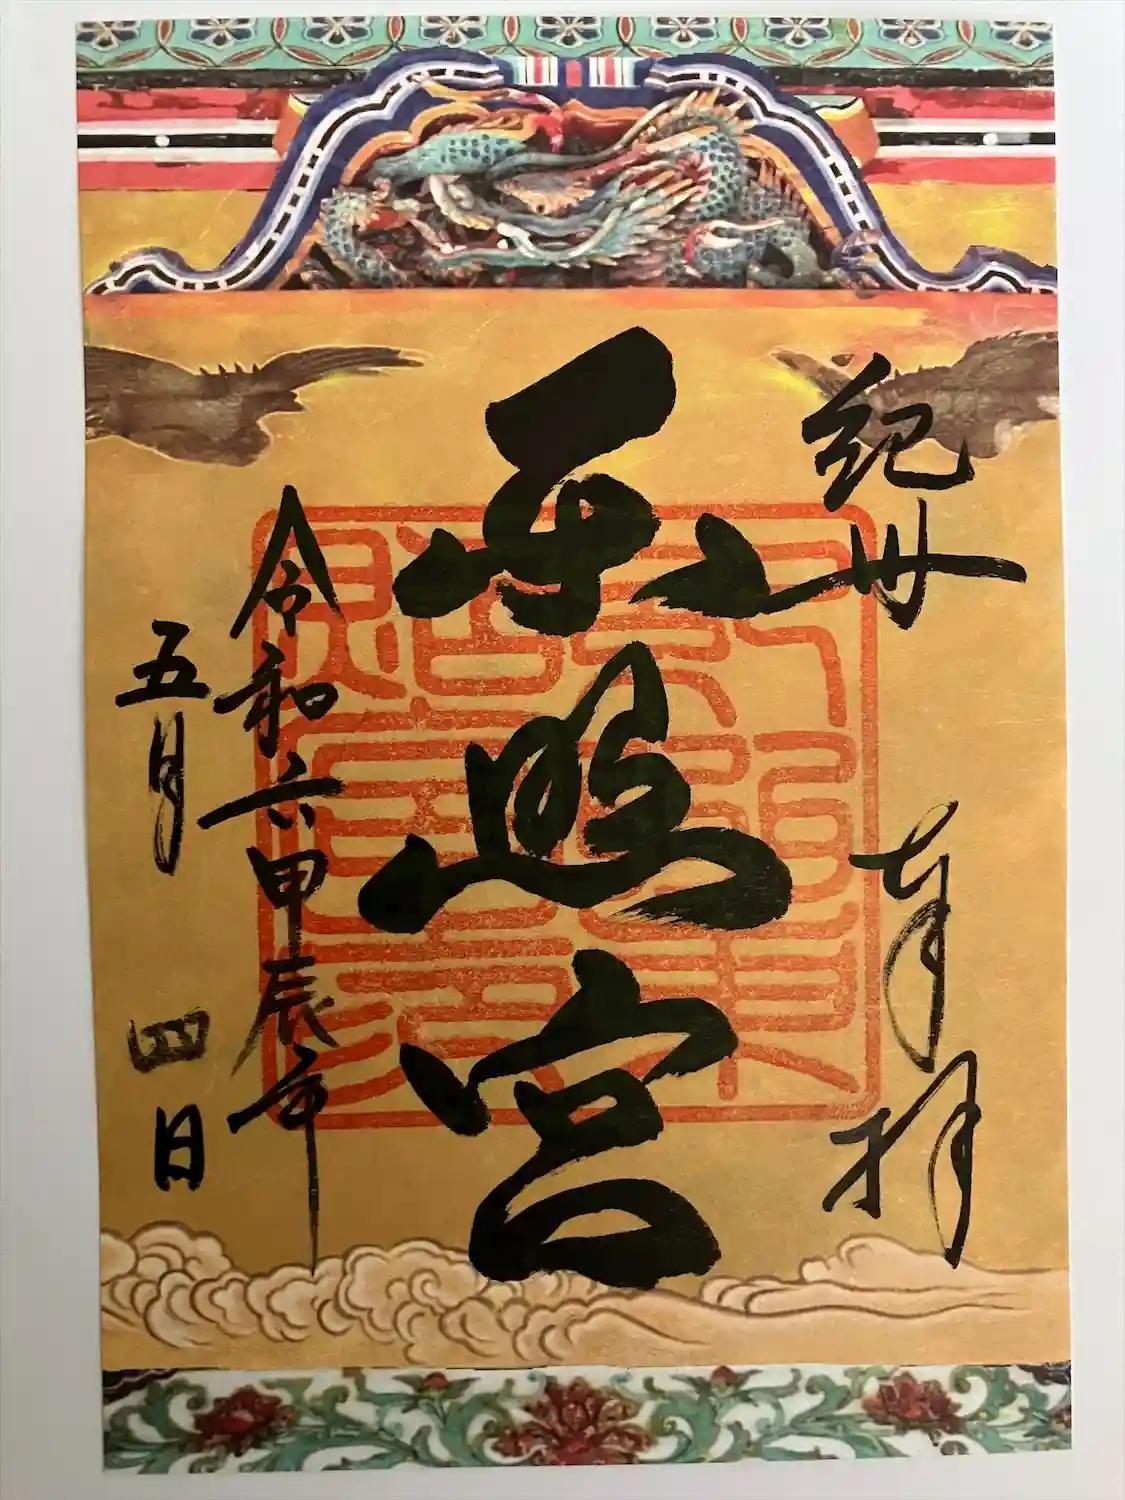 紀州
奉拝
東照宮
令和六甲辰年
五月四日